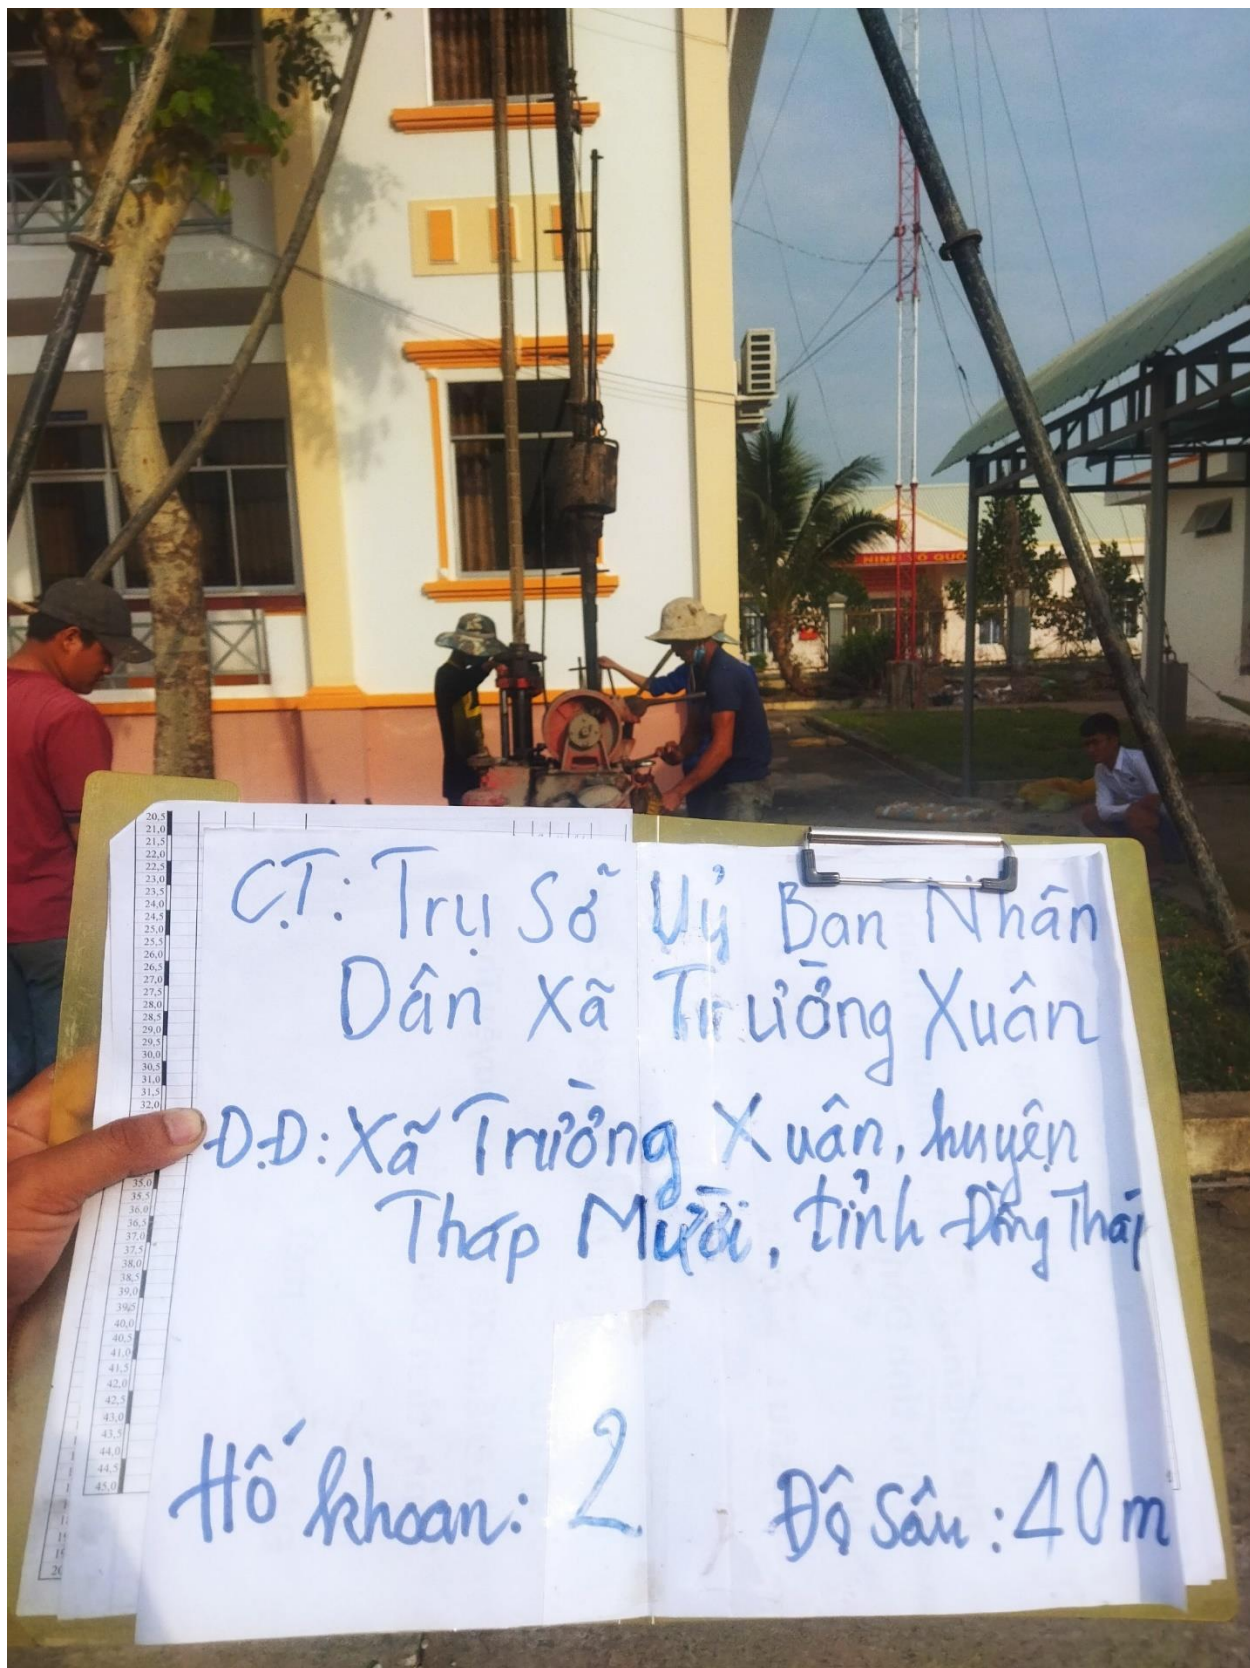 NINH TỔ QUỐ
20,5
21,0
21,5
22,0
22,5
23,0
23,5
24,0
24,5
25,0
25,5
26,0
26,5
27,0
27,5
28,0
28,5
29,0
29,5
30,0
30,5
31,0
31,5
32,0
35,0
35,5
36,0
36,5
37,0
37,5
38,0
38,5
39,0
39,5
40,0
40,5
41,0
41,5
42,0
42,5
43,0
43,5
44,0
44,5
45,0
C.T: Trụ Sở Uỷ Ban Nhân
Dân Xã Trường Xuân
Đ.Đ: Xã Trường Xuân, huyện
Tháp Mười, tỉnh Đồng Tháp
Hố khoan: 2 Độ sâu: 40m